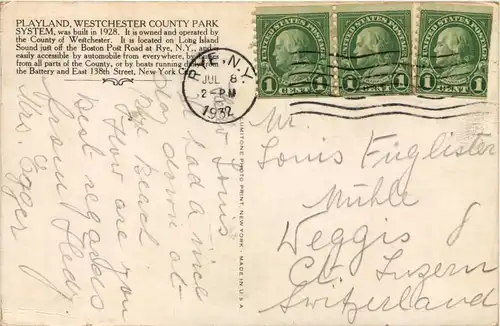 PLAYLAND, WESTCHESTER COUNTY PARK
SYSTEM, was built in 1928. It is owned and operated by
the County of Westchester. It is located on Long Island
Sound just off the Boston Post Road at Rye, N.Y., and is
easily accessible by automobile from everywhere, by
from all parts of the County, or by boats running daily from
the Battery and East 138th Street, New York
RYE, N.Y.
JUL 8
2-PM
1932
UNITED STATES POSTAGE
1 CENT 1
UNITED STATES POSTAGE
1 CENT 1
UNITED STATES POSTAGE
1 CENT 1
Louis
had a nice
day down at
Rye Beach
How are you
Best regards
from Hedy
Mrs. Egger
PHOTO PRINT, NEW YORK. MADE IN U.S.A.
Mr.
Louis Englister
Mühle
Weggis
Ct. Luzern
Switzerland